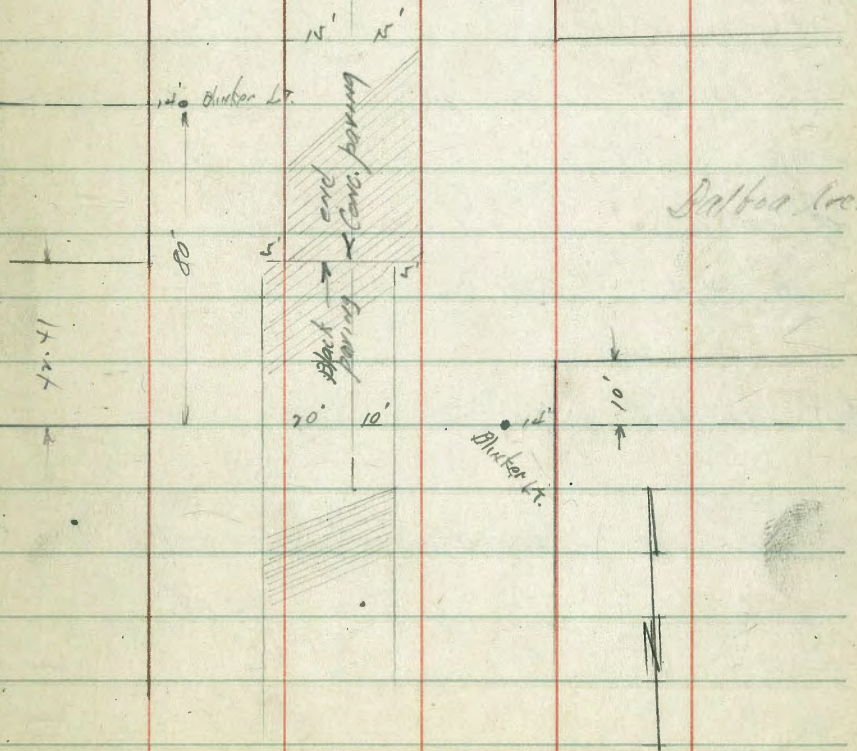 15' 15'
14' Blinker LT.
end
Conc. paving
Balboa
80'
5' 5'
42.41
Black
paving
20' 10'
14'
Blinker LT.
10'
N